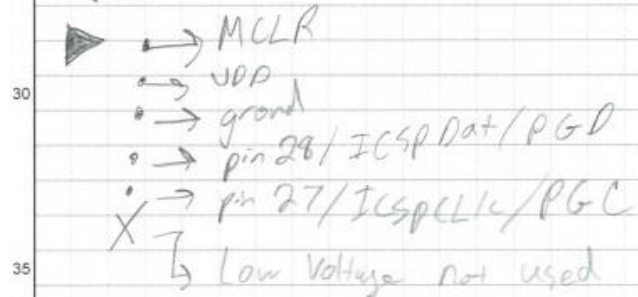 MCLR
VDD
30
grond
pin 28/ICSPDat/PGD
pin 27/ICSPCLK/PGC
Low Voltage not used
35